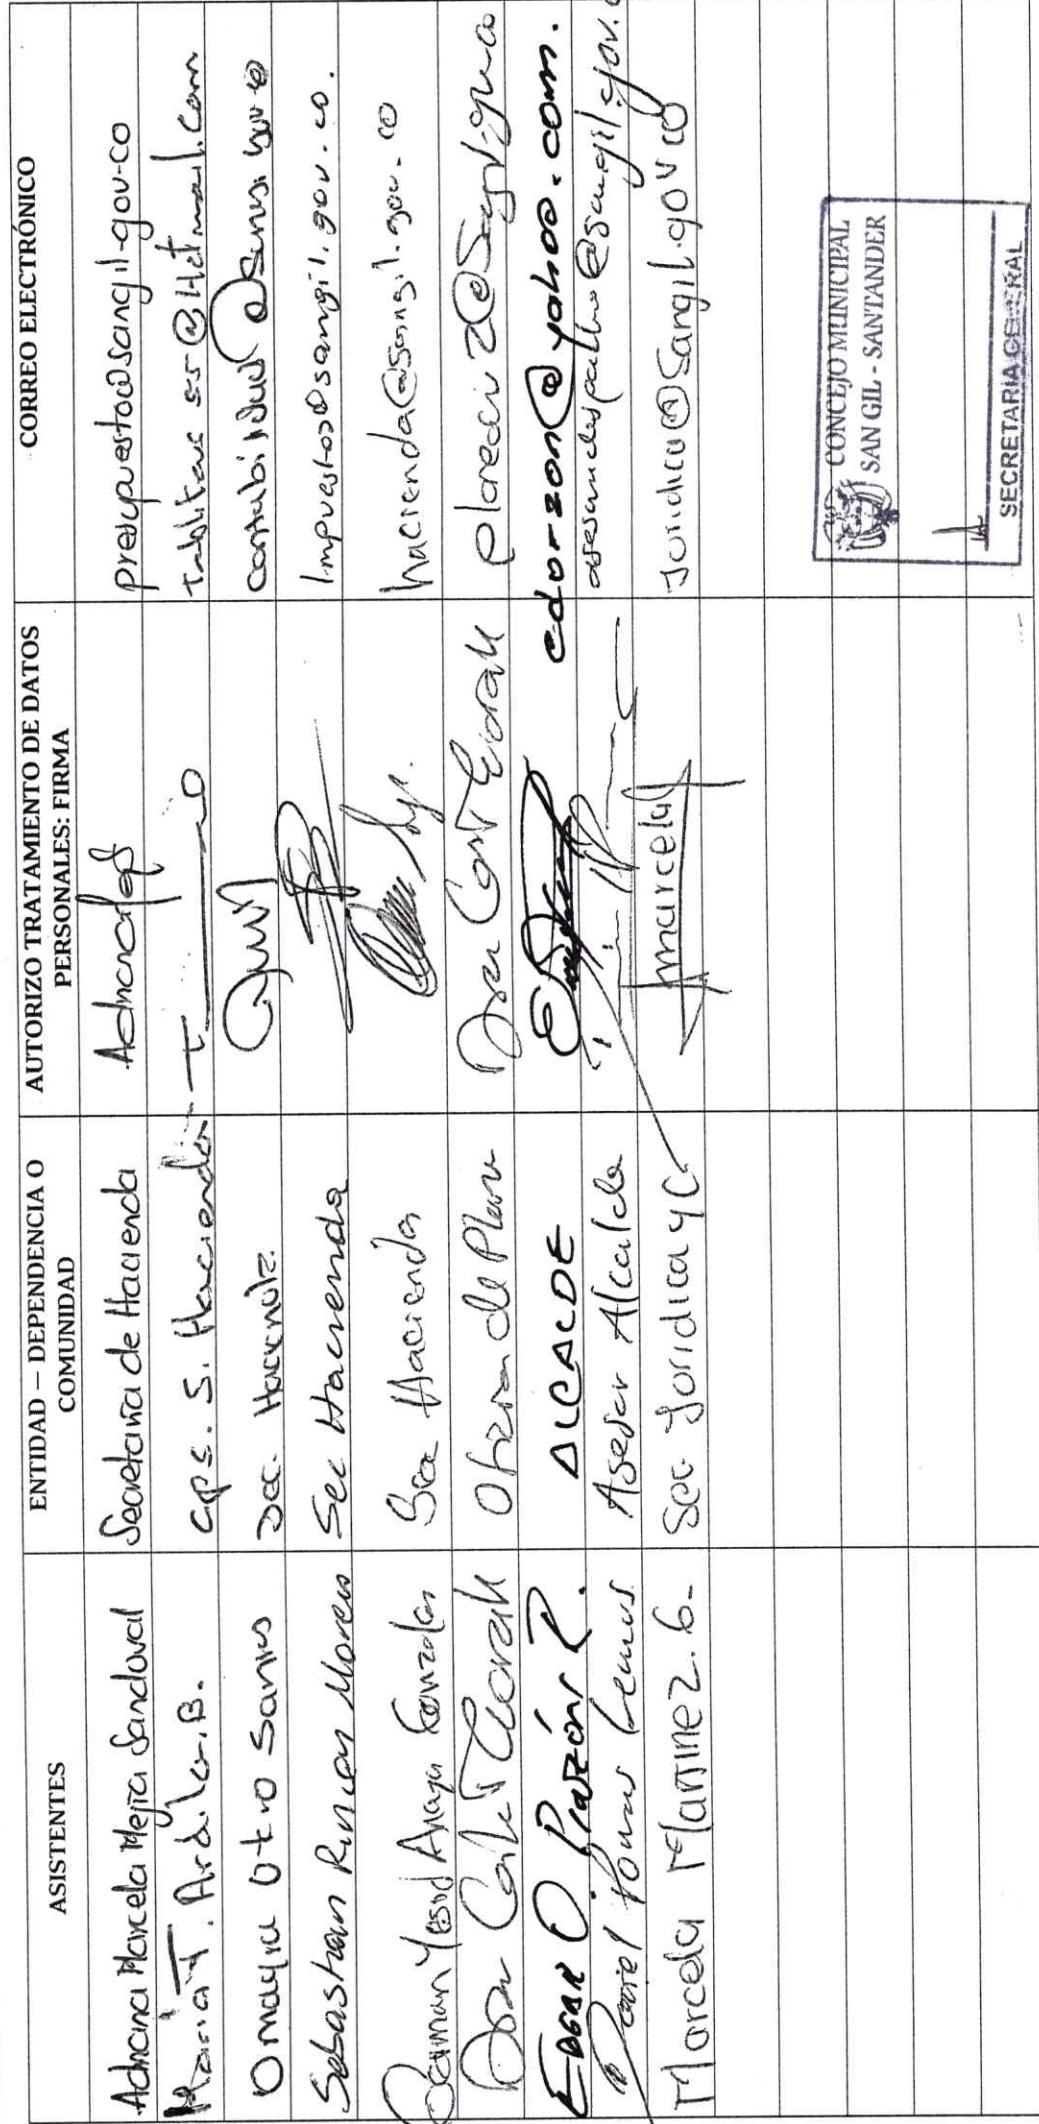 ASISTENTES
ENTIDAD – DEPENDENCIA O COMUNIDAD
AUTORIZO TRATAMIENTO DE DATOS PERSONALES: FIRMA
CORREO ELECTRÓNICO
Adriana Marcela Mejia Sandoval Secretaria de Hacienda presupuesto@sangil.gov.co
Maria T. Ardila B. cps. S. Hacienda @Hotmail.com
Omayra Otero Sec. Hacienda contabilidad
Sebastian Rincon Moreno Sec Hacienda impuestos@sangil.gov.co.
Yesid Anaya Gonzalez Sec Hacienda hacienda@sangil.gov.co
Oficina de Plane
EDGAR O. PINZÓN R. ALCALDE edorzon@yahoo.com.
Daniel Lemus Asesor Alcalde
Marcela Martinez G. Sec Juridica y C Marcela juridica@sangil.gov.co
CONCEJO MUNICIPAL
SAN GIL - SANTANDER
SECRETARIA GENERAL